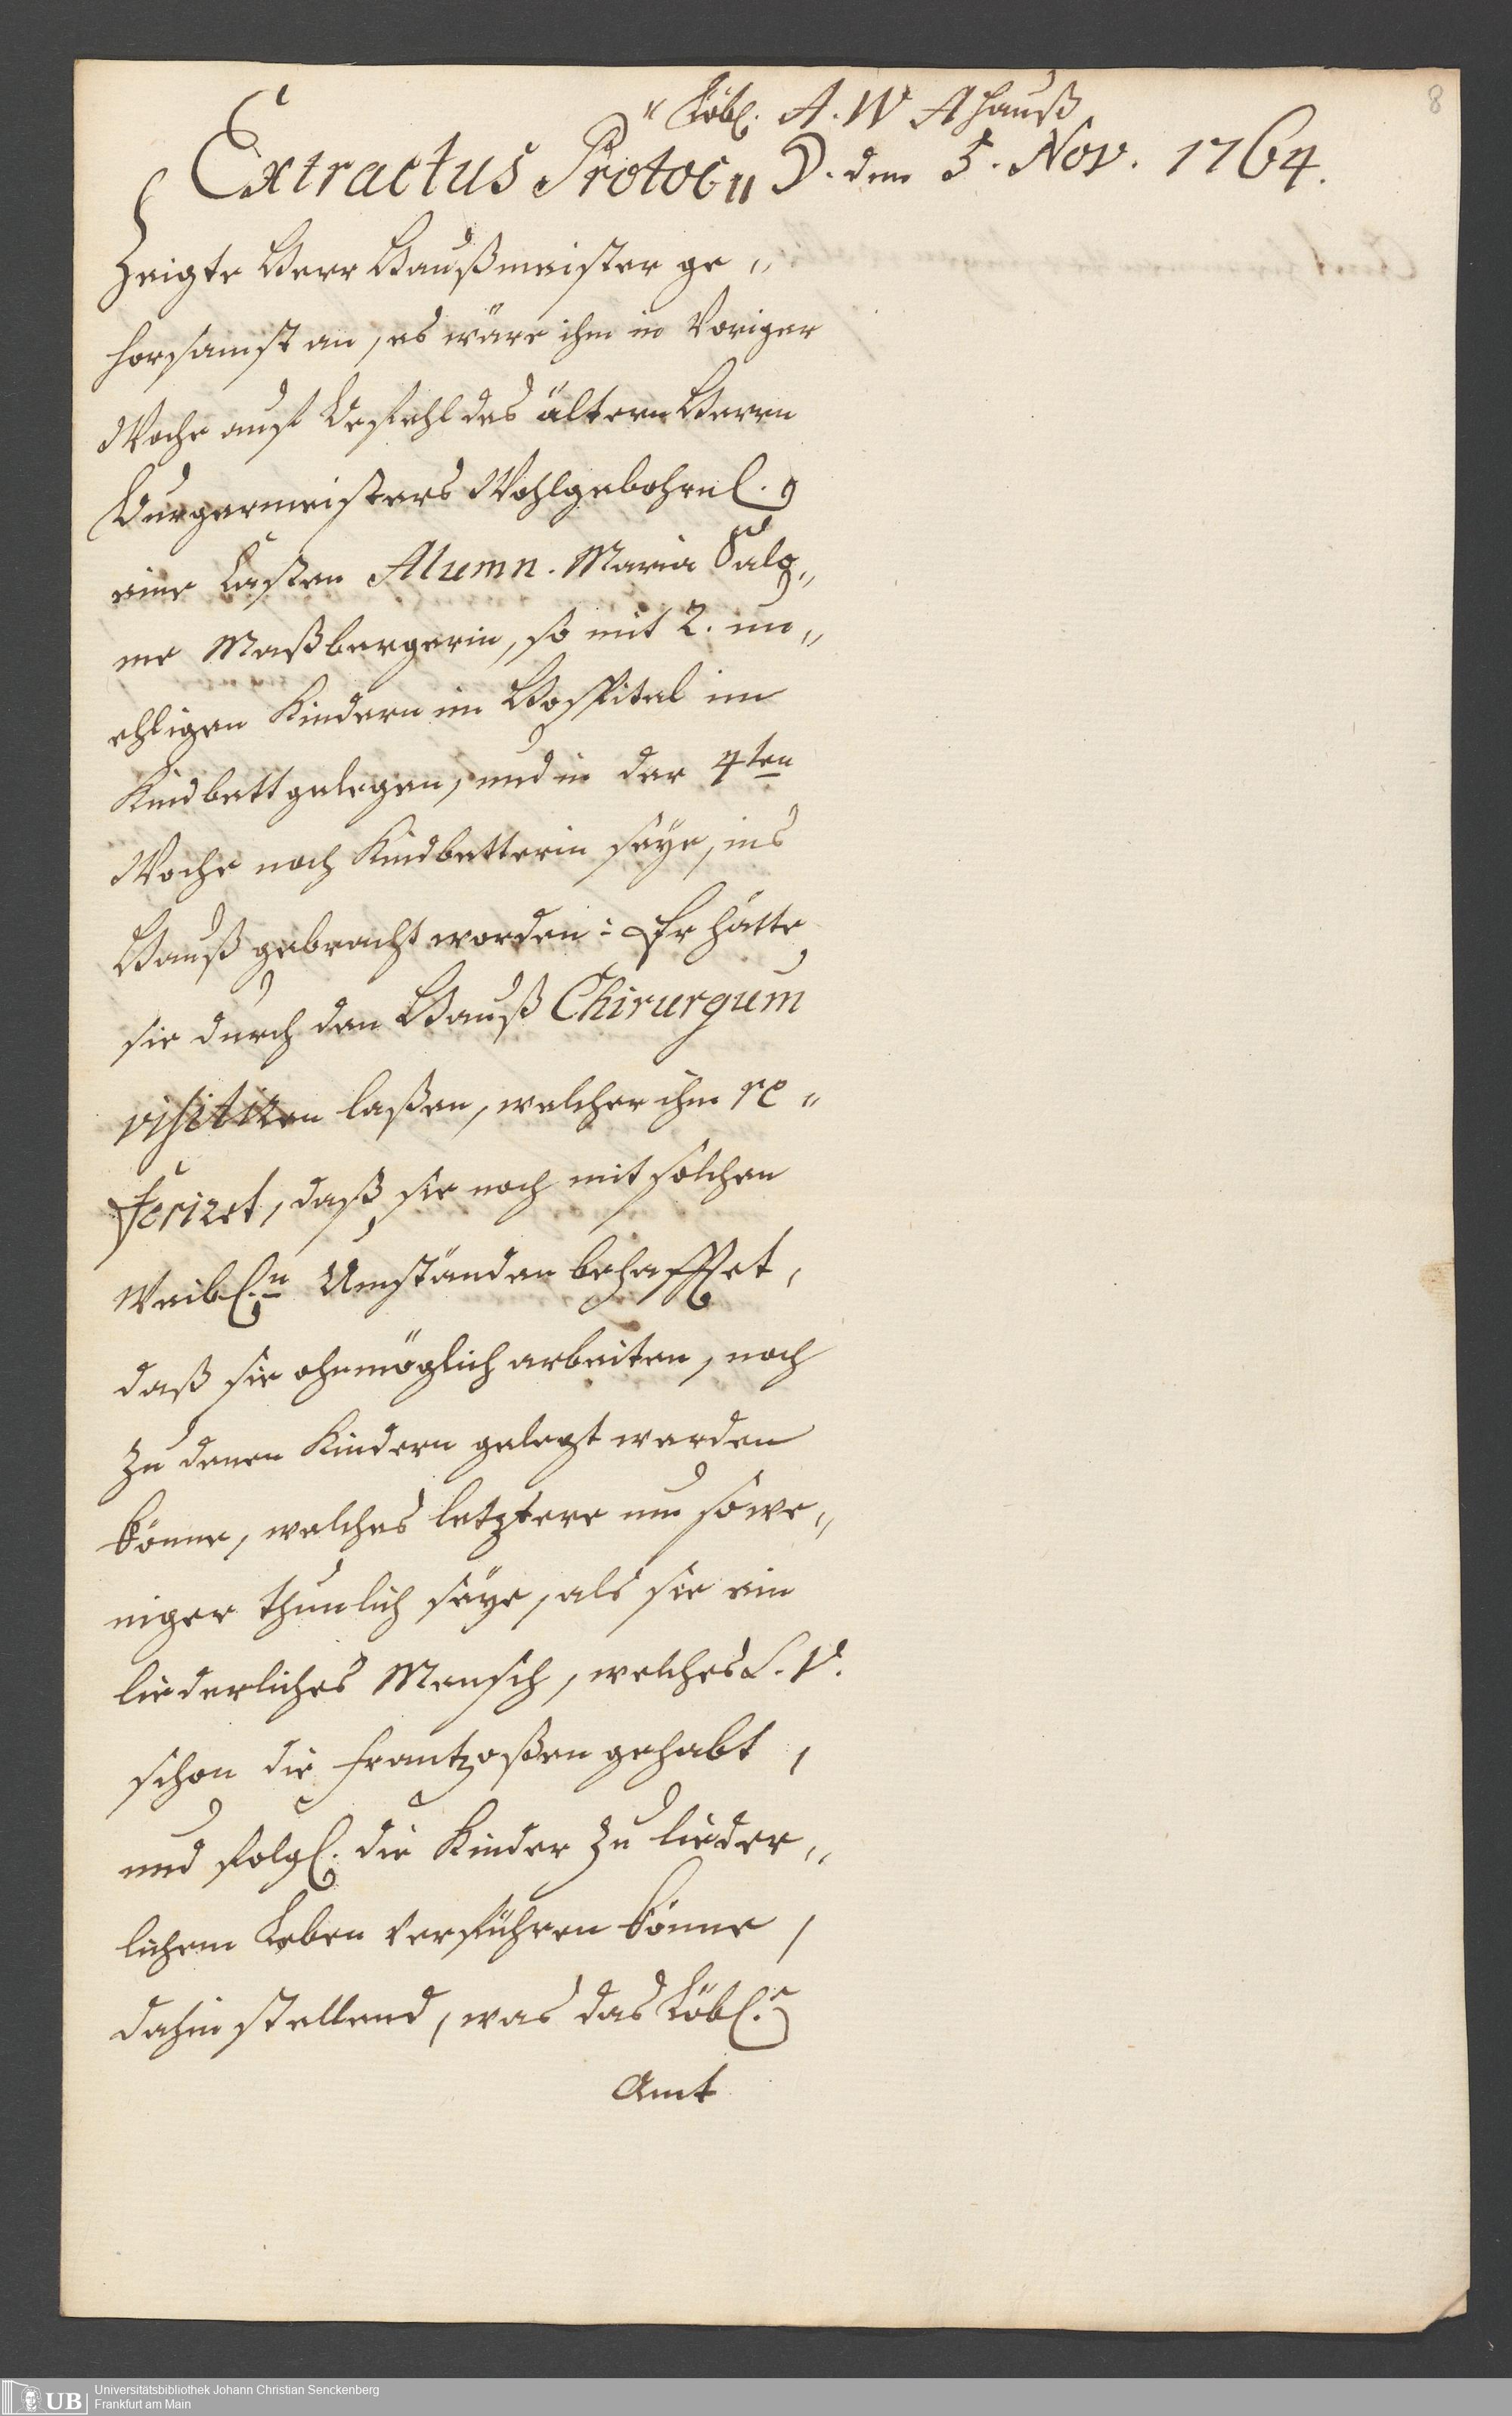 8
" Löbl. A. W Ahauß
Extractus Protoc„ D. dem 5. Nov. 1764.
Zeigte Herr Haußmeister ge„
horsamst an, es wäre ihm in voriger
Woche auf Befehl des ältern Herrn
Burgermeisters Wohlgebohrnl.
eine Casten Alumn. Maria Salo„
me Maßbergerin, so mit 2. un„
ehligen Kindern im Hospital im
Kindbett gelegen, und in der 4ten
Woche noch Kindbetterin seye, ins
Hauß gebracht worden: Er hätte
sie durch den Hauß Chirurgum
visitiren laßen, welcher ihm re„
feriret, daß sie noch mit solchen
Weibl.n Umständen behafftet,
daß sie ohnmöglich arbeiten, noch
zu denen Kindern gelegt werden
könne, welches letztere um so we„
niger thunlich seye, als sie ein
liederliches Mensch, welches S. V.
schon die Frantzoßen gehabt,
und folgl. die Kinder zu lieder„
lichem Leben verführen könne,
dahin stellend, was das Löbl.e
Amt
UB
Universitätsbibliothek Johann Christian Senckenberg
Frankfurt am Main